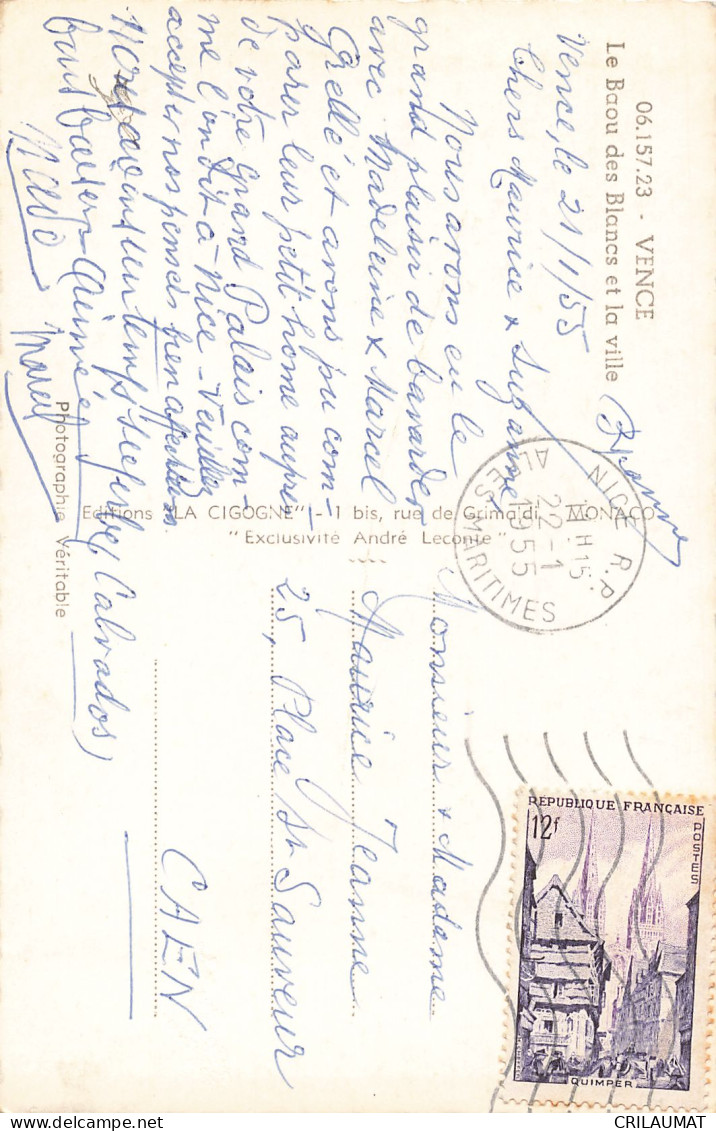 06.157.23 - VENCE
Le Baou des Blancs et la ville
Vence, le 21/1/55
Chers Maurice & Suzanne,
Nous avons eu le
grand plaisir de bavarder
avec Madeleine & Marcel
Grellé et avons pu com-
parer leur petit home auprès
de votre Grand Palais com-
me l'on dit à Nice - Veuillez
accepter nos pensées bien
Marcel
Photographie Véritable
Editions "LA CIGOGNE" - 1 bis, rue de Grimaldi - MONACO
"Exclusivité André Leconte"
NICE R.P.
H15
22-1
1955
ALPES-MARITIMES
Monsieur & Madame
Maurice Jeanne
25, Place St Sauveur
CAEN
(Calvados)
REPUBLIQUE FRANÇAISE
12f
POSTES
QUIMPER
CRILAUMAT